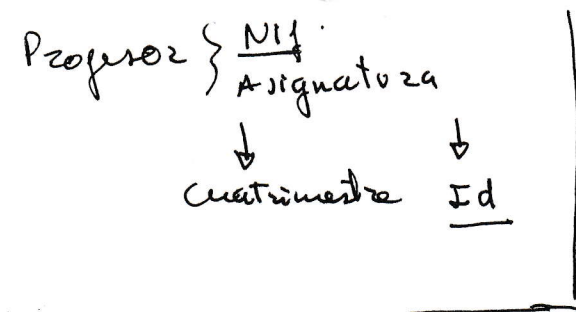 Profesor } Nif
Asignatura
↓ ↓
Cuatrimestre Id